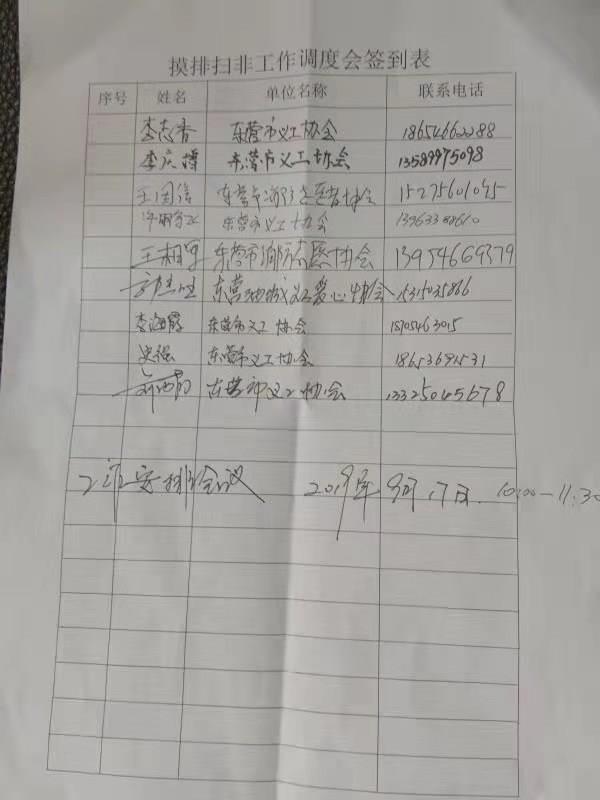 摸排扫非工作调度会签到表
序号 姓名 单位名称 联系电话
李志香 东营市义工协会 18654662288
李庆梅 东营市义工协会 13589975098
王国信 东营市消防志愿者协会 15275601045
东营市义工协会
东营市消防志愿协会 13954669379
东营 义工爱心协会
李海霞 东营市义工协会 18705463015
史强 东营市义工协会
东营市义工协会 13325045678
工作安排会议 2019年9月17日 10:00-11:30